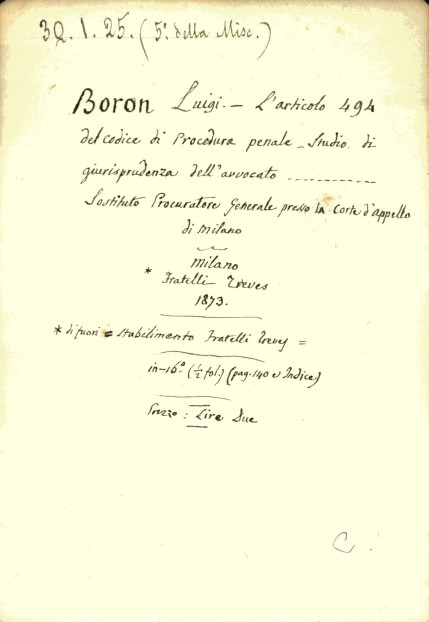 3Q. 1. 25. (5º della Misc.)
Boron Luigi. — L'articolo 494
del codice di Procedura penale – Studio di
giurisprudenza dell'avvocato ------------
Sostituto Procuratore Generale presso la Corte d'appello
di Milano
Milano
* Fratelli Treves
1873.
* di fuori = Stabilimento Fratelli Treves =
in-16º (½ fol.) (pag. 140 e Indice)
Prezzo : Lire Due
C.